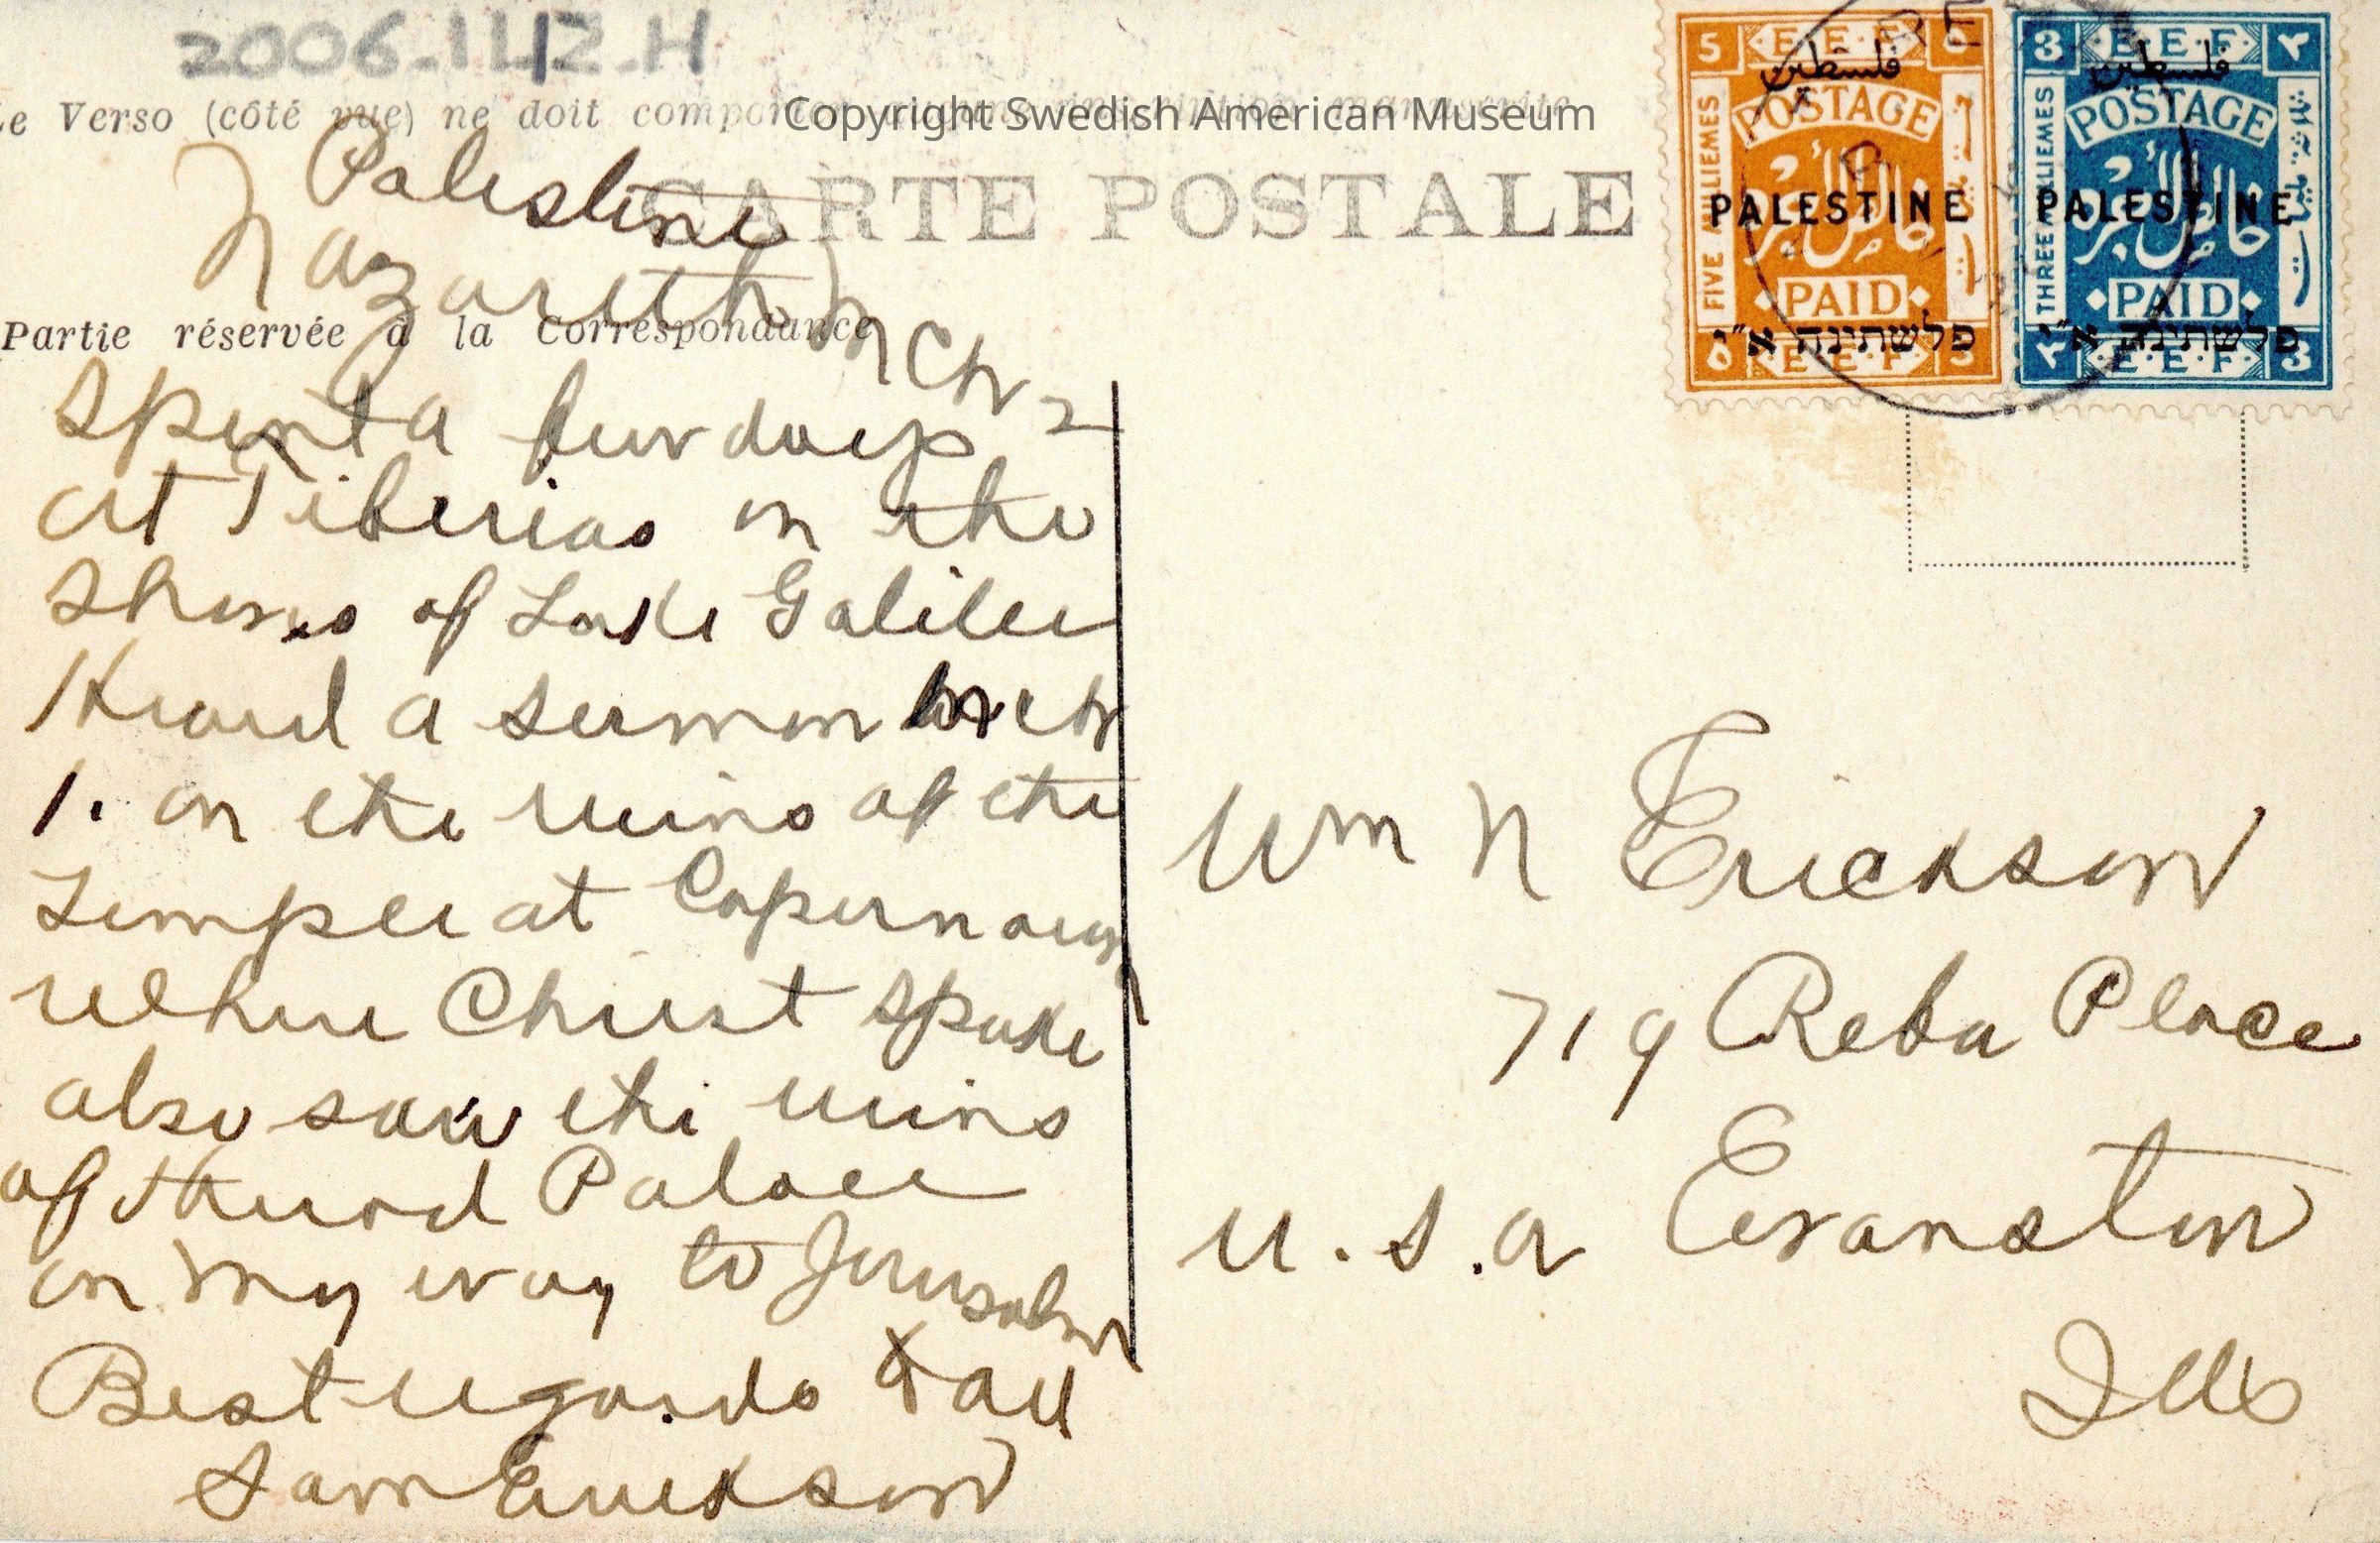 2006.142.H
Le Verso (côté vue) ne doit comporter aucune inscription manuscrite
Copyright Swedish American Museum
CARTE POSTALE
Palestine
Nazareth Mch 2
Partie réservée à la Correspondance
Spent a few days
at Tiberias on the
Shores of Lake Galilee
Heard a sermon Mch
1. on the ruins of the
Temple at Capernaum
where Christ spoke
also saw the ruins
of Herod Palace
on my way to Jerusalem
Best regards to all
Sam Erickson
Wm N Erickson
719 Reba Place
Evanston
U.S.A
Ills
5 E.E.F 5
فلسطين
POSTAGE
FIVE MILLIEMES
خالص اجره
PALESTINE
PAID
פלשתינה א״י
٥ E.E.F 5
3 E.E.F ٣
فلسطين
POSTAGE
THREE MILLIEMES
خالص اجره
PALESTINE
PAID
פלשתינה א״י
٣ E.E.F 3